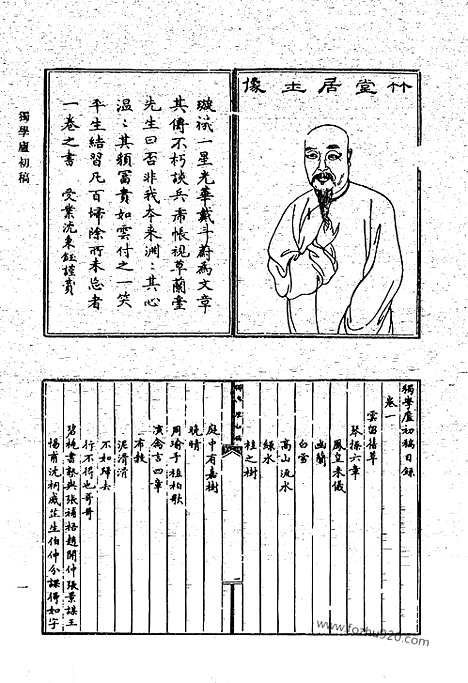 竹堂居士像
璇璣一星光華戴斗蔚為文章
其傳不朽談兵虎帳視草蘭臺
先生曰否非我本來淵〻其心
溫〻其顏富貴如雲付之一笑
平生結習凡百埽除所未忘者
一卷之書 受業沈秉鈺謹贊
獨學廬初稿
獨學廬初稿目錄
卷一
雲留舊草
琴操六章
鳳皇來儀
幽蘭
白雪
高山流水
綠水
桂之樹
庭中有嘉樹
晚晴
周瑜手植柏歌
演禽言四章
布穀
泥滑滑
不如歸去
行不得也哥哥
碧桃書塾與張補梧趙開仲張景謀王
惕甫沈桐威芷生伯仲分課得如字
一
www.fozhu920.com